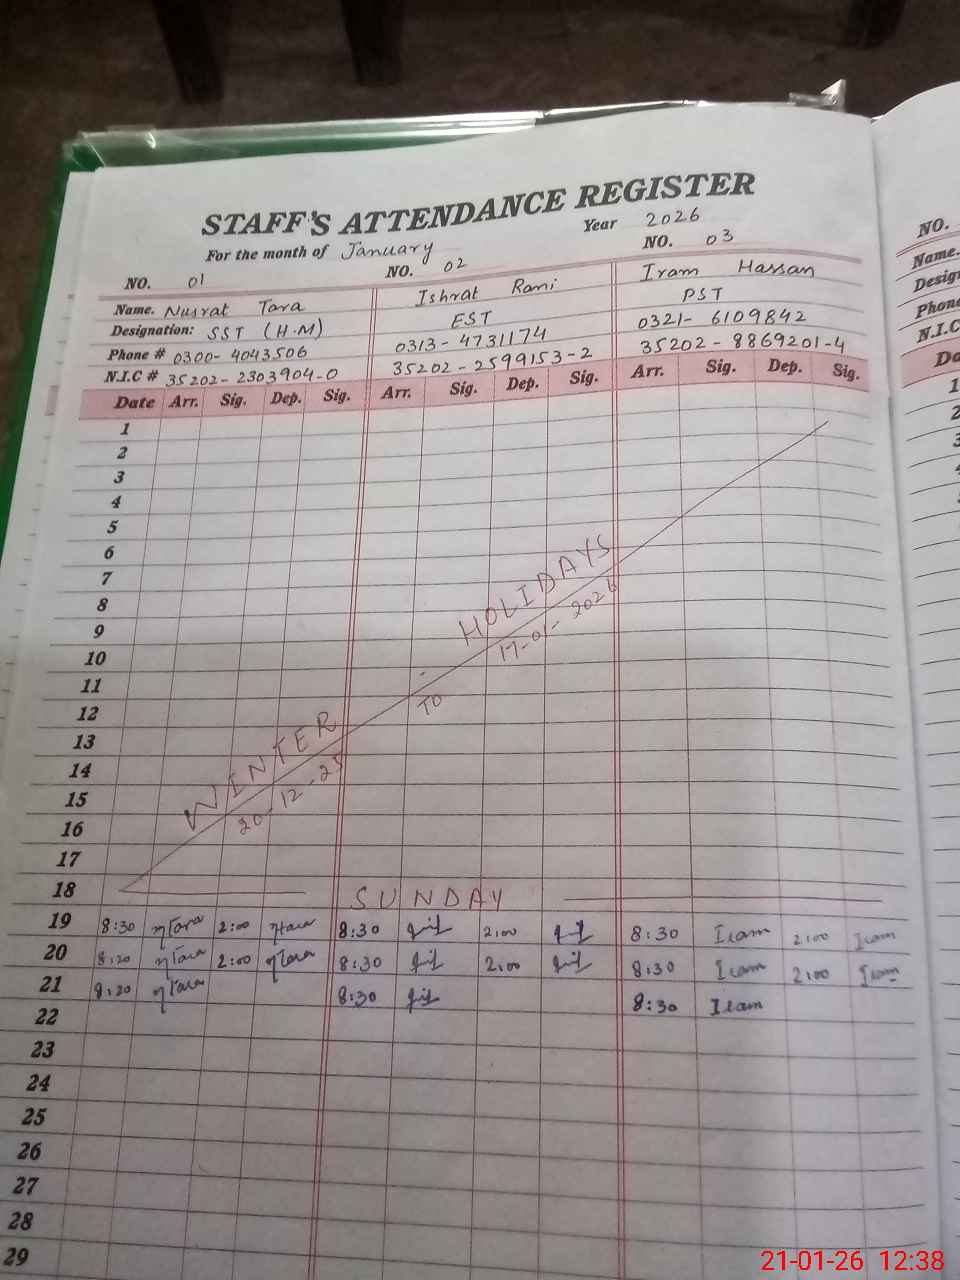 STAFF'S ATTENDANCE REGISTER
For the month of January Year 2026
NO. 01 NO. 02 NO. 03
Name. Nusrat Tara Ishrat Rani Iram Hassan
Designation: SST (H.M) EST PST
Phone # 0300-4043506 0313-4731174 0321-6109842
N.I.C # 35202-2303904-0 35202-2599153-2 35202-8869201-4
Date Arr. Sig. Dep. Sig. Arr. Sig. Dep. Sig. Arr. Sig. Dep. Sig.
1
2
3
4
5
6
7
8
9
10
11
12
13
14
15
16
17
WINTER HOLIDAYS
20-12-25 TO 17-01-2026
18 SUNDAY
19 8:30 ηTara 2:00 ηTara 8:30 2:00 8:30 Iram 2:00 Iram
20 8:20 ηTara 2:00 ηTara 8:30 2:00 8:30 Iram 2:00 Iram
21 8:20 ηTara 8:30 8:30 Iram
22
23
24
25
26
27
28
29
NO.
Name.
Phone
N.I.C
1
2
21-01-26 12:38